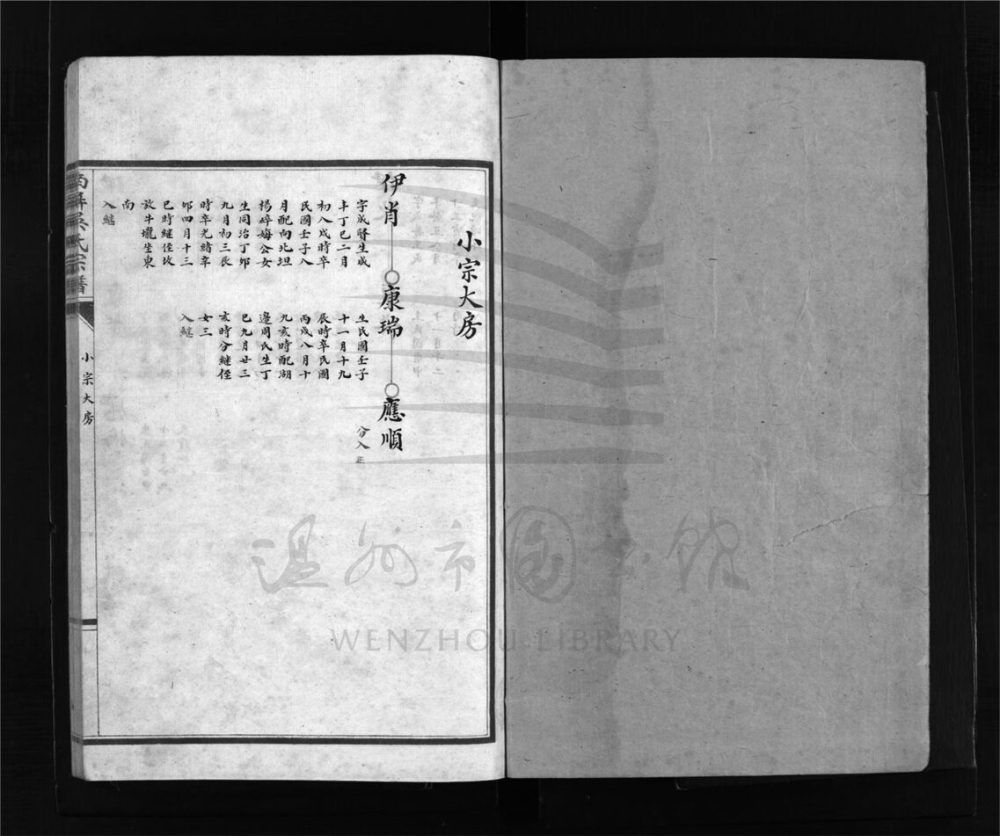 小宗大房
伊肖
康瑞
應順
字成賢生咸
丰丁巳二月
初八戌時卒
民國壬子八
月配向北坦
楊碎海公女
生同治丁卯
九月初三辰
時卒光緒辛
卯四月十三
巳時繼侄玫
放牛壠坐東
南
入繼
生民國壬子
十一月十九
辰時卒民國
丙戌八月十
九亥時配湖
邊周氏生丁
巳九月廿三
亥時分繼侄
女三
入繼
分入
吳氏宗譜
小宗大房
温州市图书馆
WENZHOU LIBRARY